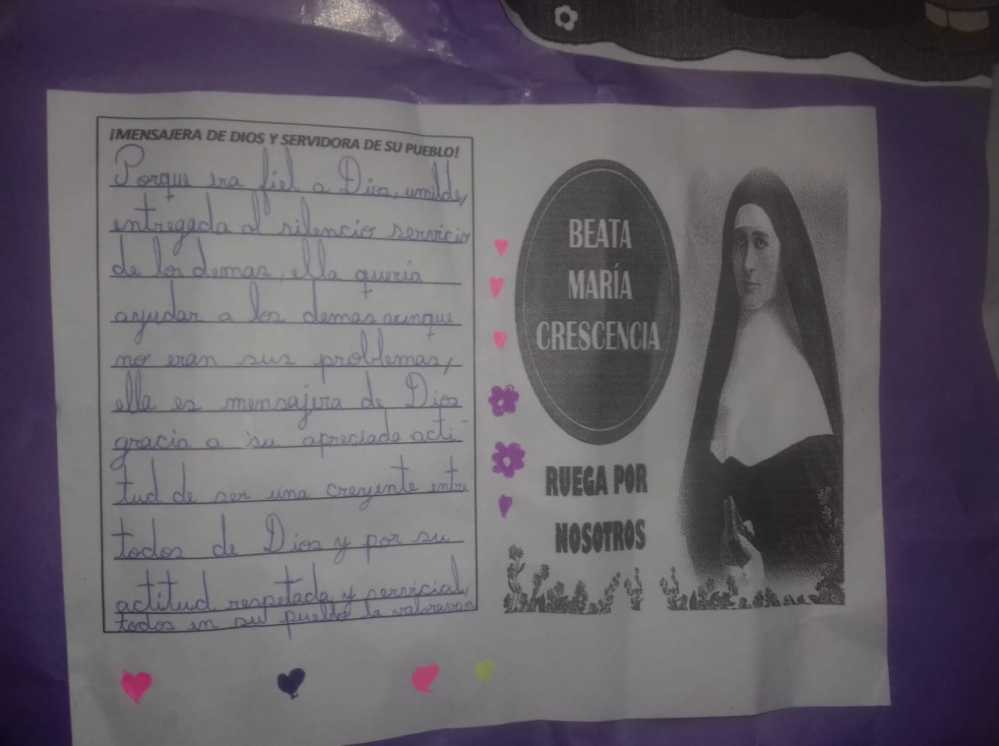 ¡MENSAJERA DE DIOS Y SERVIDORA DE SU PUEBLO!
Porque era fiel a Dios, umilde,
entregada al silencio servicio
de los demas, ella queria
ayudar a los demas aunque
no eran sus problemas,
ella es mensajera de Dios
gracia a su apreciada acti-
tud de ser una creyente entre
todos de Dios y por su
actitud respetada y servicial,
todos en su pueblo la valoravan
BEATA
MARÍA
CRESCENCIA
RUEGA POR
NOSOTROS